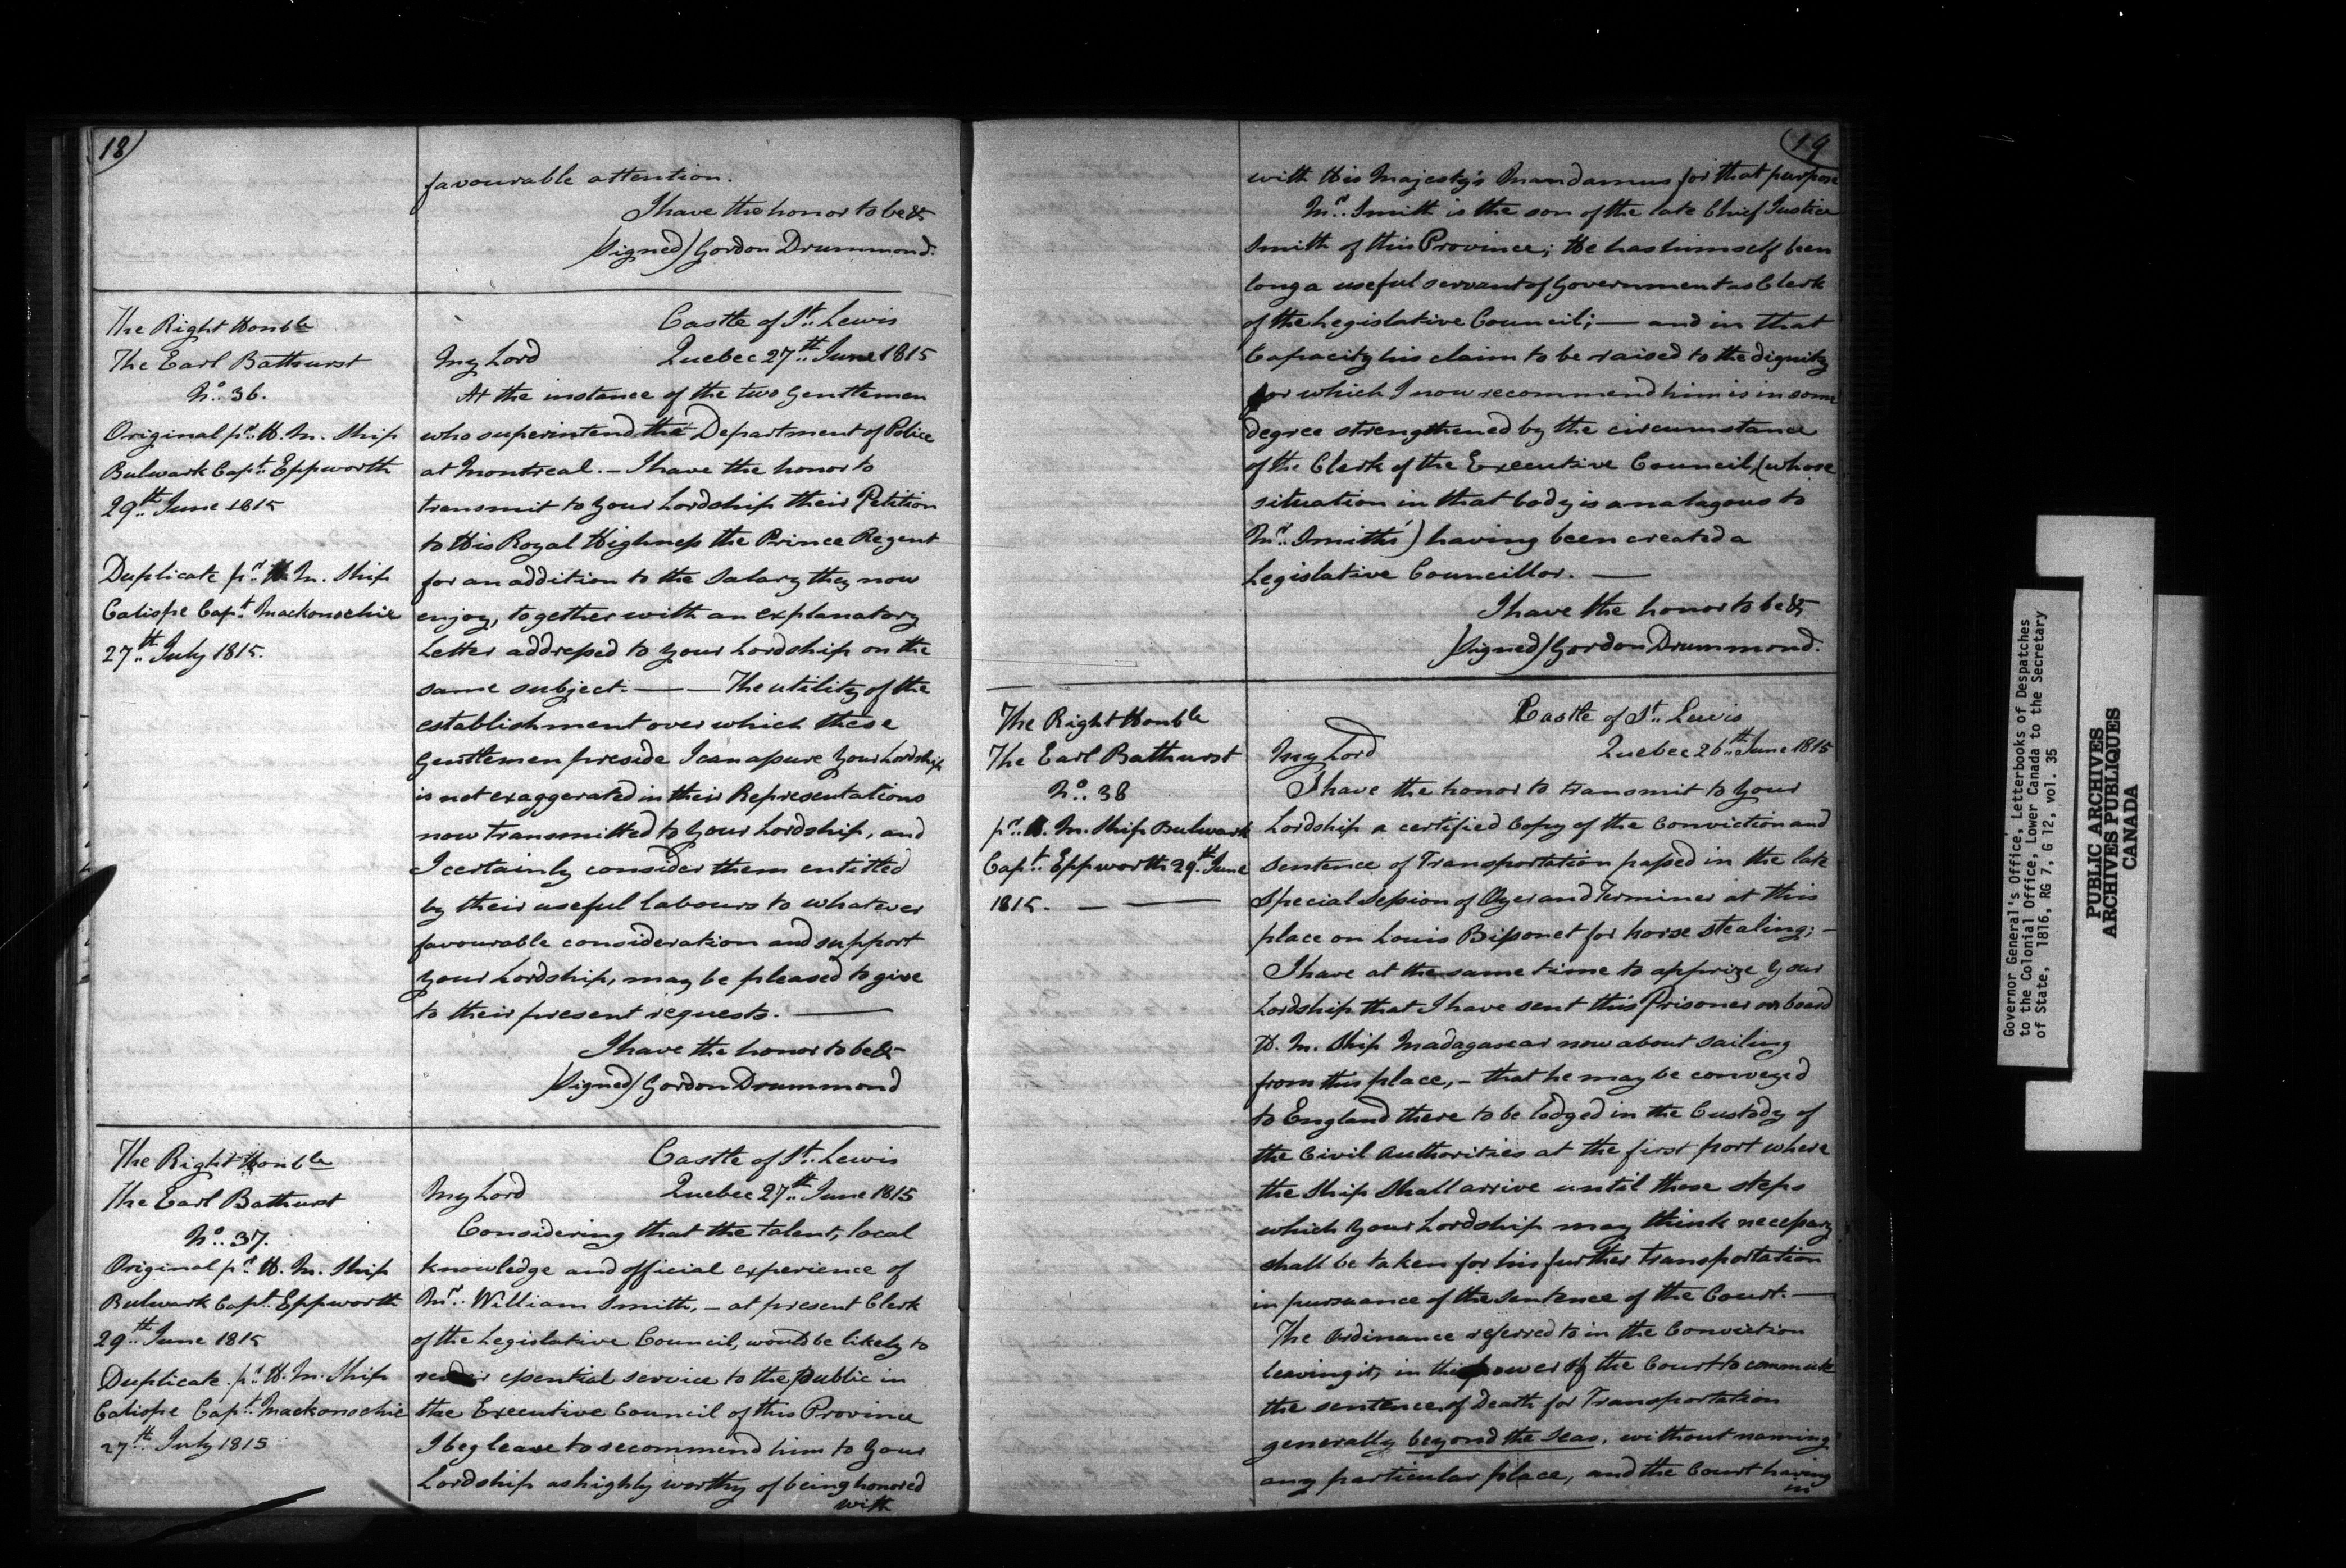 18
favourable attention.
I have the honor to be &c
(Signed) Gordon Drummond.
The Right Honble
The Earl Bathurst
No. 36.
Original pr. H. M. Ship
Bulwark Capt. Eppworth
29th June 1815
Duplicate pr. H. M. Ship
Caliope Capt. Mackonochie
27th July 1815.
Castle of St. Lewis
My Lord Quebec 27th June 1815
At the instance of the two Gentlemen
who superintend the Department of Police
at Montreal. - I have the honor to
transmit to Your Lordship their Petition
to His Royal Highness the Prince Regent
for an addition to the Salary they now
enjoy, together with an explanatory
Letter addressed to Your Lordship on the
same subject. — — The utility of the
establishment over which these
Gentlemen preside I can assure Your Lordship
is not exaggerated in their Representations
now transmitted to Your Lordship, and
I certainly consider them entitled
by their useful labours to whatever
favourable consideration and support
Your Lordship, may be pleased to give
to their present requests. —
I have the honor to be &c
(Signed) Gordon Drummond
The Right Honble
The Earl Bathurst
No. 37.
Original pr. H. M. Ship
Bulwark Capt. Eppworth
29th June 1815
Duplicate pr. H. M. Ship
Caliope Capt. Mackonochie
27th July 1815
Castle of St. Lewis
My Lord Quebec 27th June 1815
Considering that the talent, local
knowledge and official experience of
Mr. William Smith, - at present Clerk
of the Legislative Council, would be likely to
render essential service to the public in
the Executive Council of this Province
I beg leave to recommend him to Your
Lordship as highly worthy of being honored
with
19
with His Majesty's Mandamus for that purpose
Mr. Smith is the son of the late Chief Justice
Smith of this Province; He has himself been
long a useful servant of Government as Clerk
of the Legislative Council; — and in that
Capacity his claim to be raised to the dignity
for which I now recommend him is in some
degree strengthened by the circumstance
of the Clerk of the Executive Council, (whose
situation in that body is analagous to
Mr. Smith's) having been created a
Legislative Councillor. —
I have the honor to be &c
(Signed) Gordon Drummond.
The Right Honble
The Earl Bathurst
No. 38
pr. H. M. Ship Bulwark
Capt. Eppworth 29th June
1815. — —
Castle of St. Lewis
My Lord Quebec 26th June 1815
I have the honor to transmit to Your
Lordship a certified Copy of the Conviction and
Sentence of Transportation passed in the late
Special Session of Oyer and Terminer at this
place on Louis Bissonet for horse stealing; -
I have at the same time to apprize Your
Lordship that I have sent this Prisoner on board
H. M. Ship Madagascar now about sailing
from this place, - that he may be conveyed
to England there to be lodged in the Custody of
the Civil Authorities at the first port where
the Ship shall arrive until those steps
which Your Lordship may think necessary
shall be taken for his further transportation
in pursuance of the Sentence of the Court. —
The Ordinance referred to in the Conviction
leaving it, in the power of the Court to commute
the sentence of Death for Transportation
generally beyond the Seas, without naming
any particular place, and the Court having
in
Governor General's Office, Letterbooks of Despatches
to the Colonial Office, Lower Canada to the Secretary
of State, 1816, RG 7, G 12, vol. 35
PUBLIC ARCHIVES
ARCHIVES PUBLIQUES
CANADA